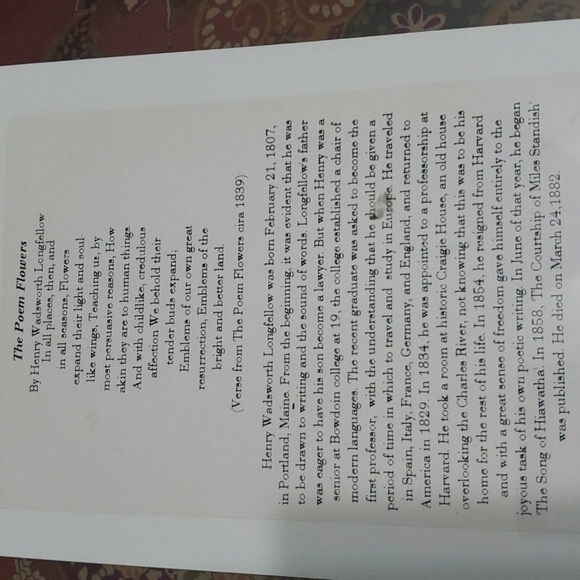 The Poem Flowers
By Henry Wadsworth Longfellow
In all places, then, and
in all seasons, Flowers
expand their light and soul-
like wings, Teaching us, by
most persuasive reasons, How
akin they are to human things.
And with childlike, credulous
affection We behold their
tender buds expand;
Emblems of our own great
resurrection, Emblems of the
bright and better land.
(Verse from The Poem Flowers cira 1839)
Henry Wadsworth Longfellow was born February 21, 1807,
in Portland, Maine. From the beginning, it was evident that he was
to be drawn to writing and the sound of words. Longfellow's father
was eager to have his son become a lawyer. But when Henry was a
senior at Bowdoin college at 19, the college established a chair of
modern languages. The recent graduate was asked to become the
first professor, with the understanding that he should be given a
period of time in which to travel and study in Europe. He traveled
in Spain, Italy, France, Germany, and England, and returned to
America in 1829. In 1834, he was appointed to a professorship at
Harvard. He took a room at historic Craigie House, an old house
overlooking the Charles River, not knowing that this was to be his
home for the rest of his life. In 1854, he resigned from Harvard
and with a great sense of freedom gave himself entirely to the
joyous task of his own poetic writing. In June of that year, he began
'The Song of Hiawatha'. In 1858, 'The Courtship of Miles Standish'
was published. He died on March 24,1882.